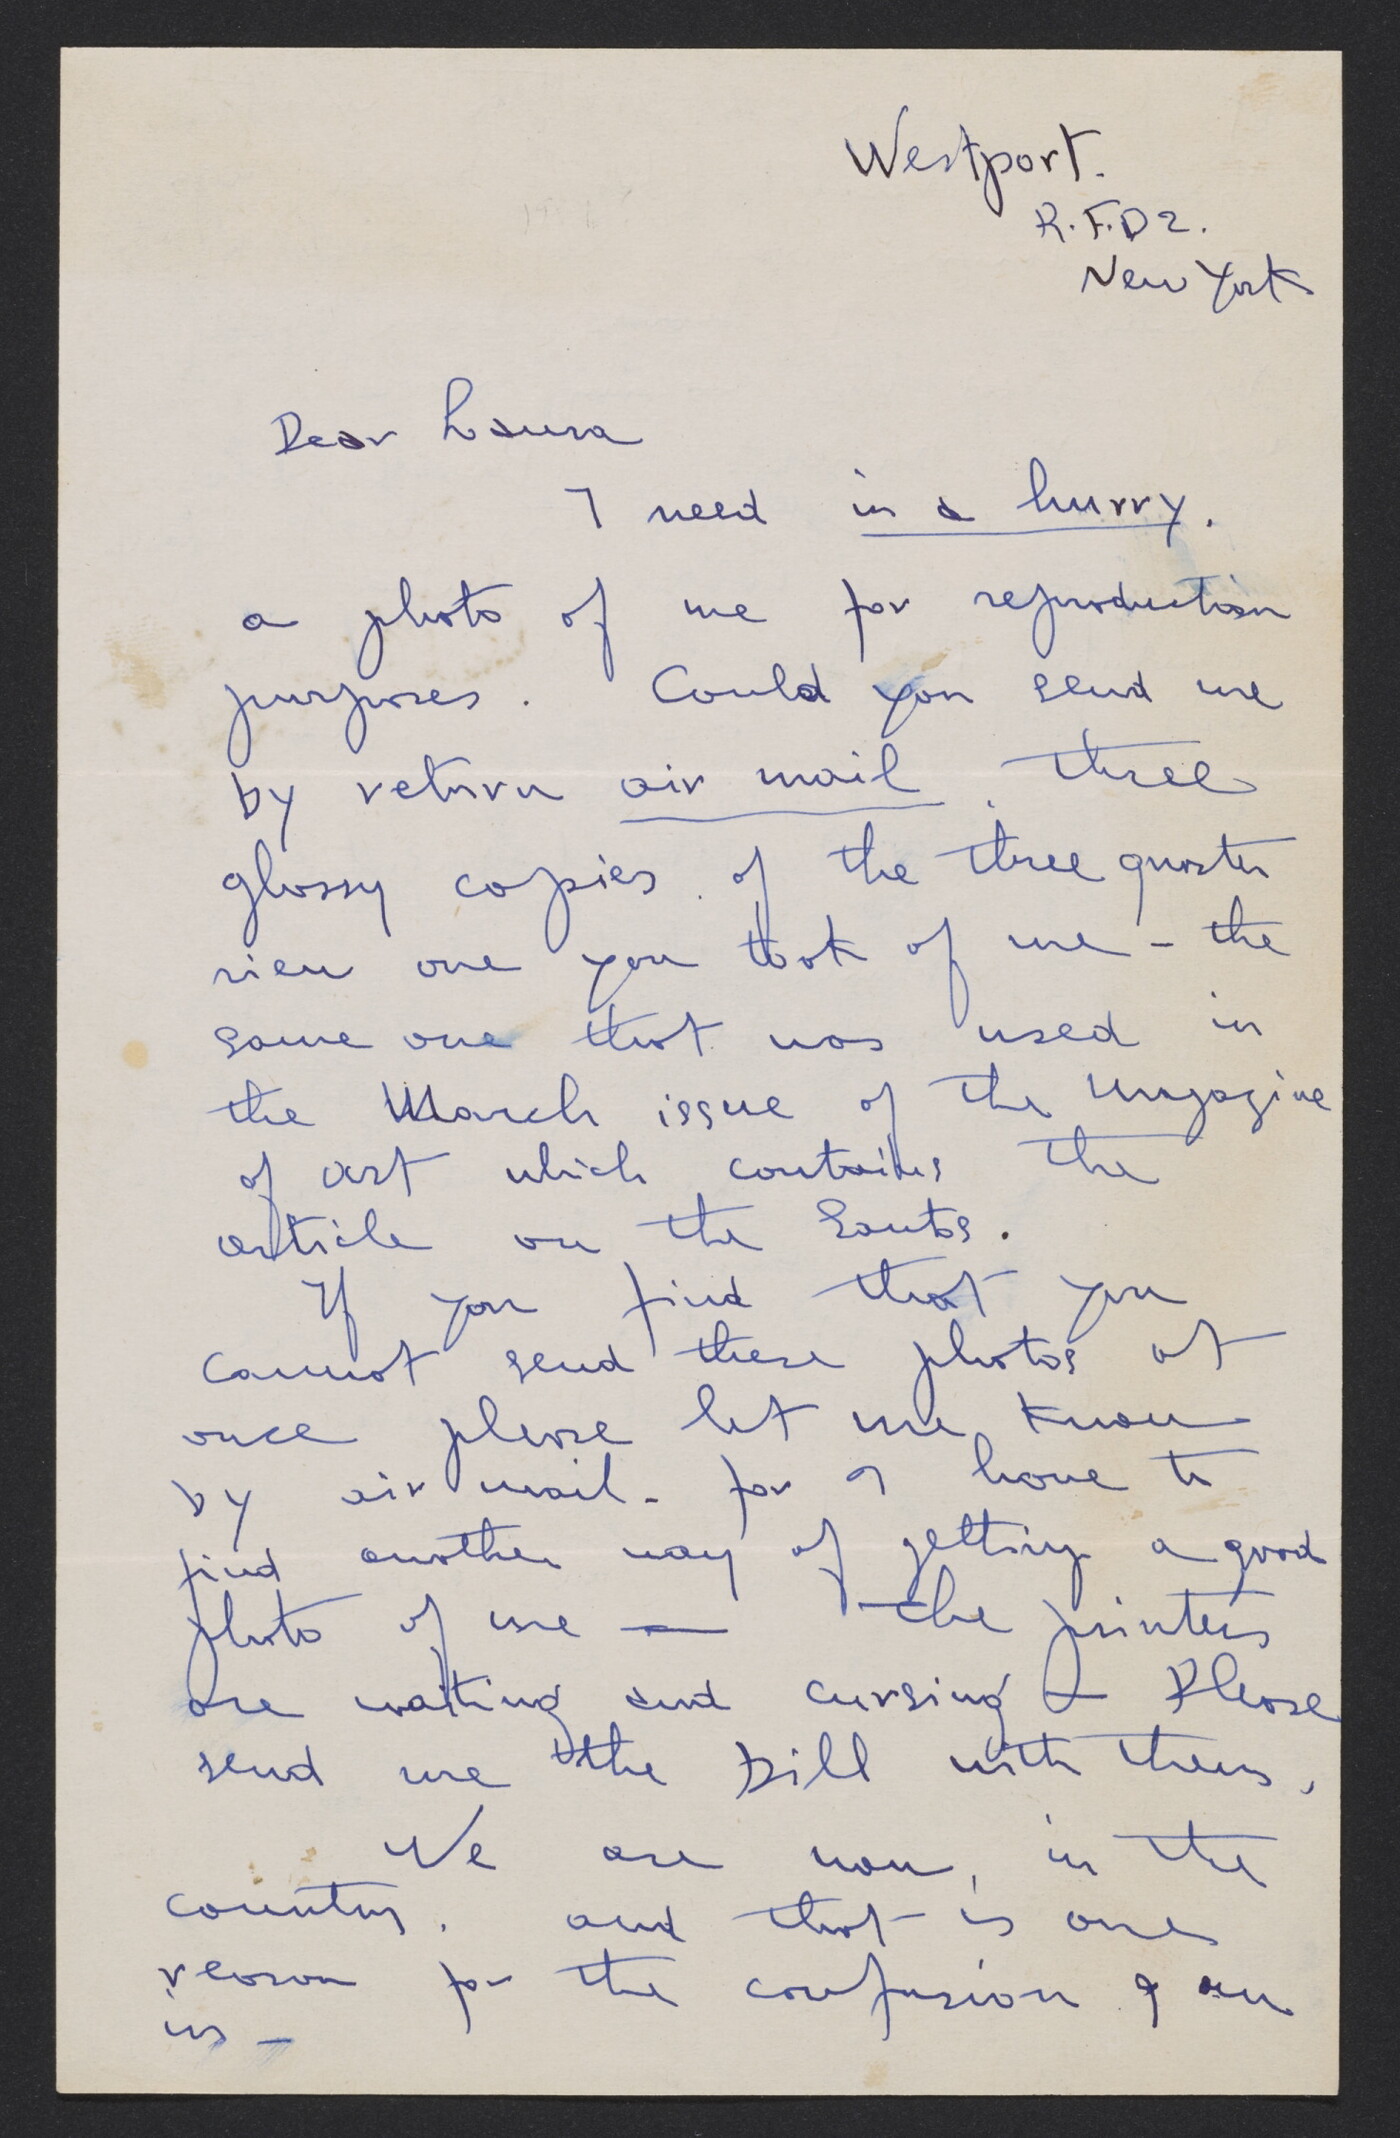 Westport.
R.F.D 2.
New York
Dear Laura
I need in a hurry.
a photo of me for reproduction
purposes. Could you send me
by return air mail, three
glossy copies of the three quarter
view one you took of me - the
same one that was used in
the March issue of the Magazine
of art which contains the
article on the Santos.
If you find that you
cannot send these photos at
once please let me know
by air mail - for I have to
find another way of getting a good
photo of me — the printers
are waiting and cursing — Please
send me the bill with them,
We are now, in the
country, and that is one
reason for the confusion I am
in -